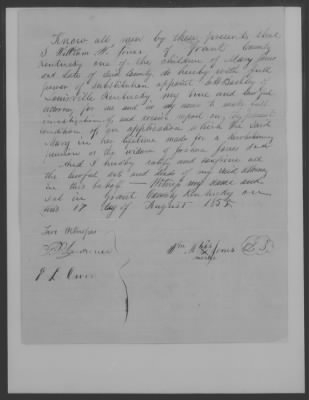 Know all men by these presents that
I William W. Jones of Grant County
Kentucky one of the children of Mary Jones
decd late of said County, do hereby with full
power of substitution appoint
Louisville Kentucky my true and lawful
attorney for me and in my name to make full
investigation of and receive report on the present
condition of an application which the said
Mary in her lifetime made for a revolutionary
pension as the widow of Joshua Jones decd
And I hereby ratify and confirm all
the lawful acts and deeds of my said attorney
in this behalf — Witness my name and
seal in Grant County Kentucky
this 17 day of August 1855
Two Witnesses
Wm his Jones
mark